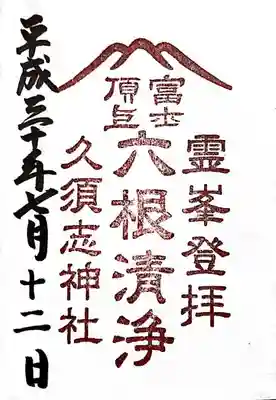 霊峯登拝
富士
頂上
六根清浄
久須志神社
平成三十年七月十二日